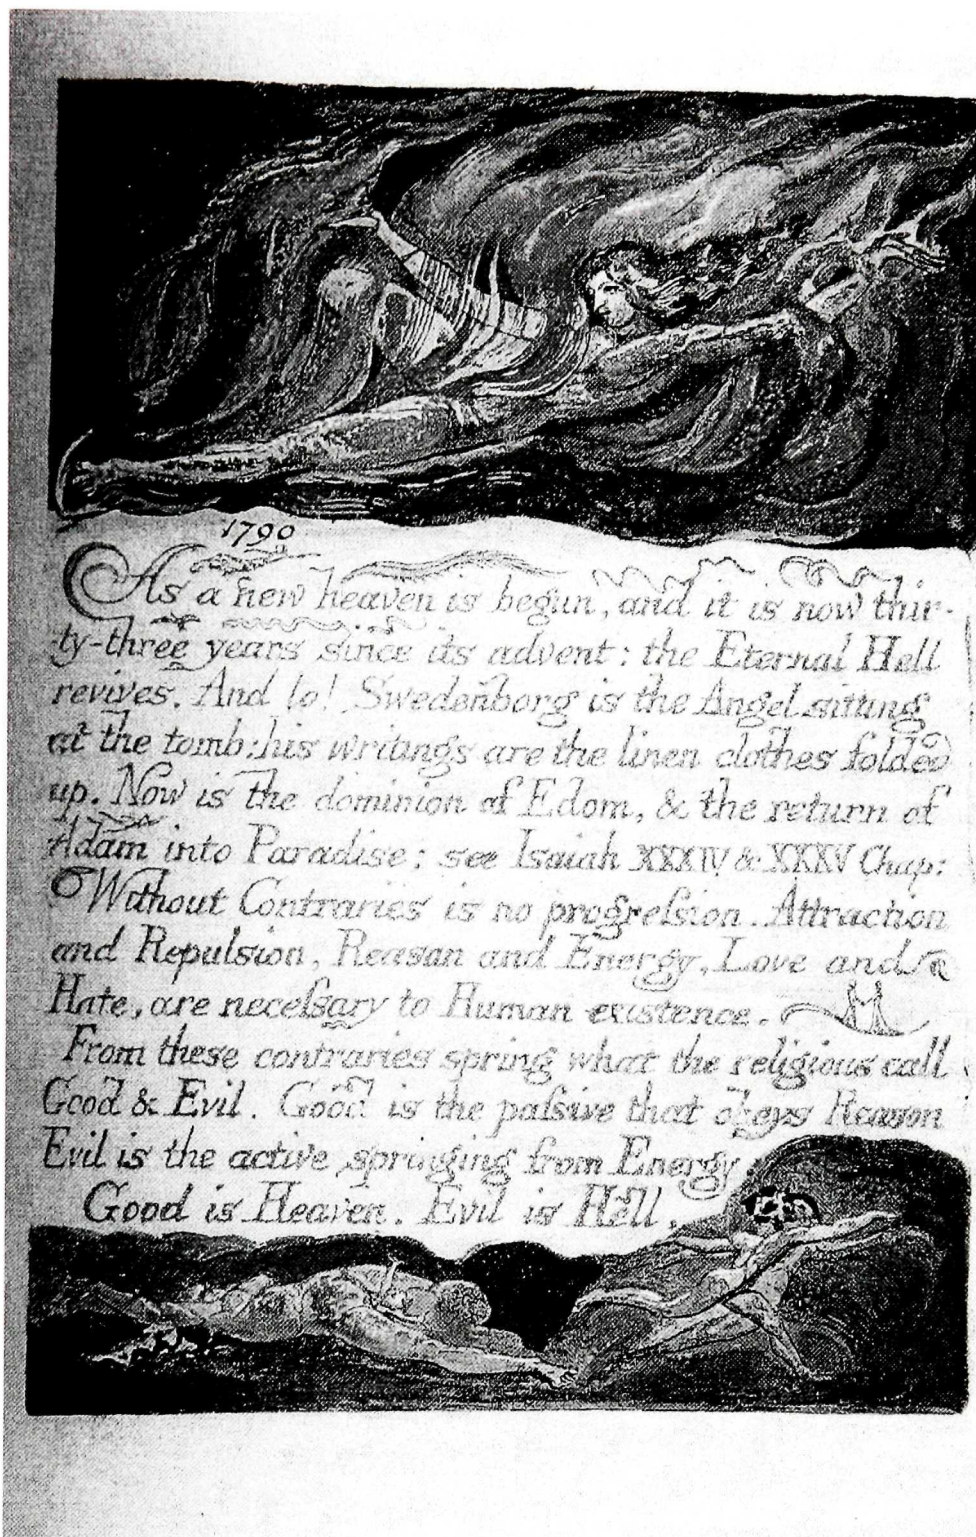 1790
As a new heaven is begun, and it is now thir-
-ty-three years since its advent: the Eternal Hell
revives. And lo! Swedenborg is the Angel sitting
at the tomb: his writings are the linen clothes folded
up. Now is the dominion of Edom, & the return of
Adam into Paradise; see Isaiah XXXIV & XXXV Chap:
Without Contraries is no progreſsion. Attraction
and Repulsion, Reason and Energy, Love and
Hate, are neceſsary to Human existence.
From these contraries spring what the religious call
Good & Evil. Good is the paſsive that obeys Reason
Evil is the active springing from Energy.
Good is Heaven. Evil is Hell.